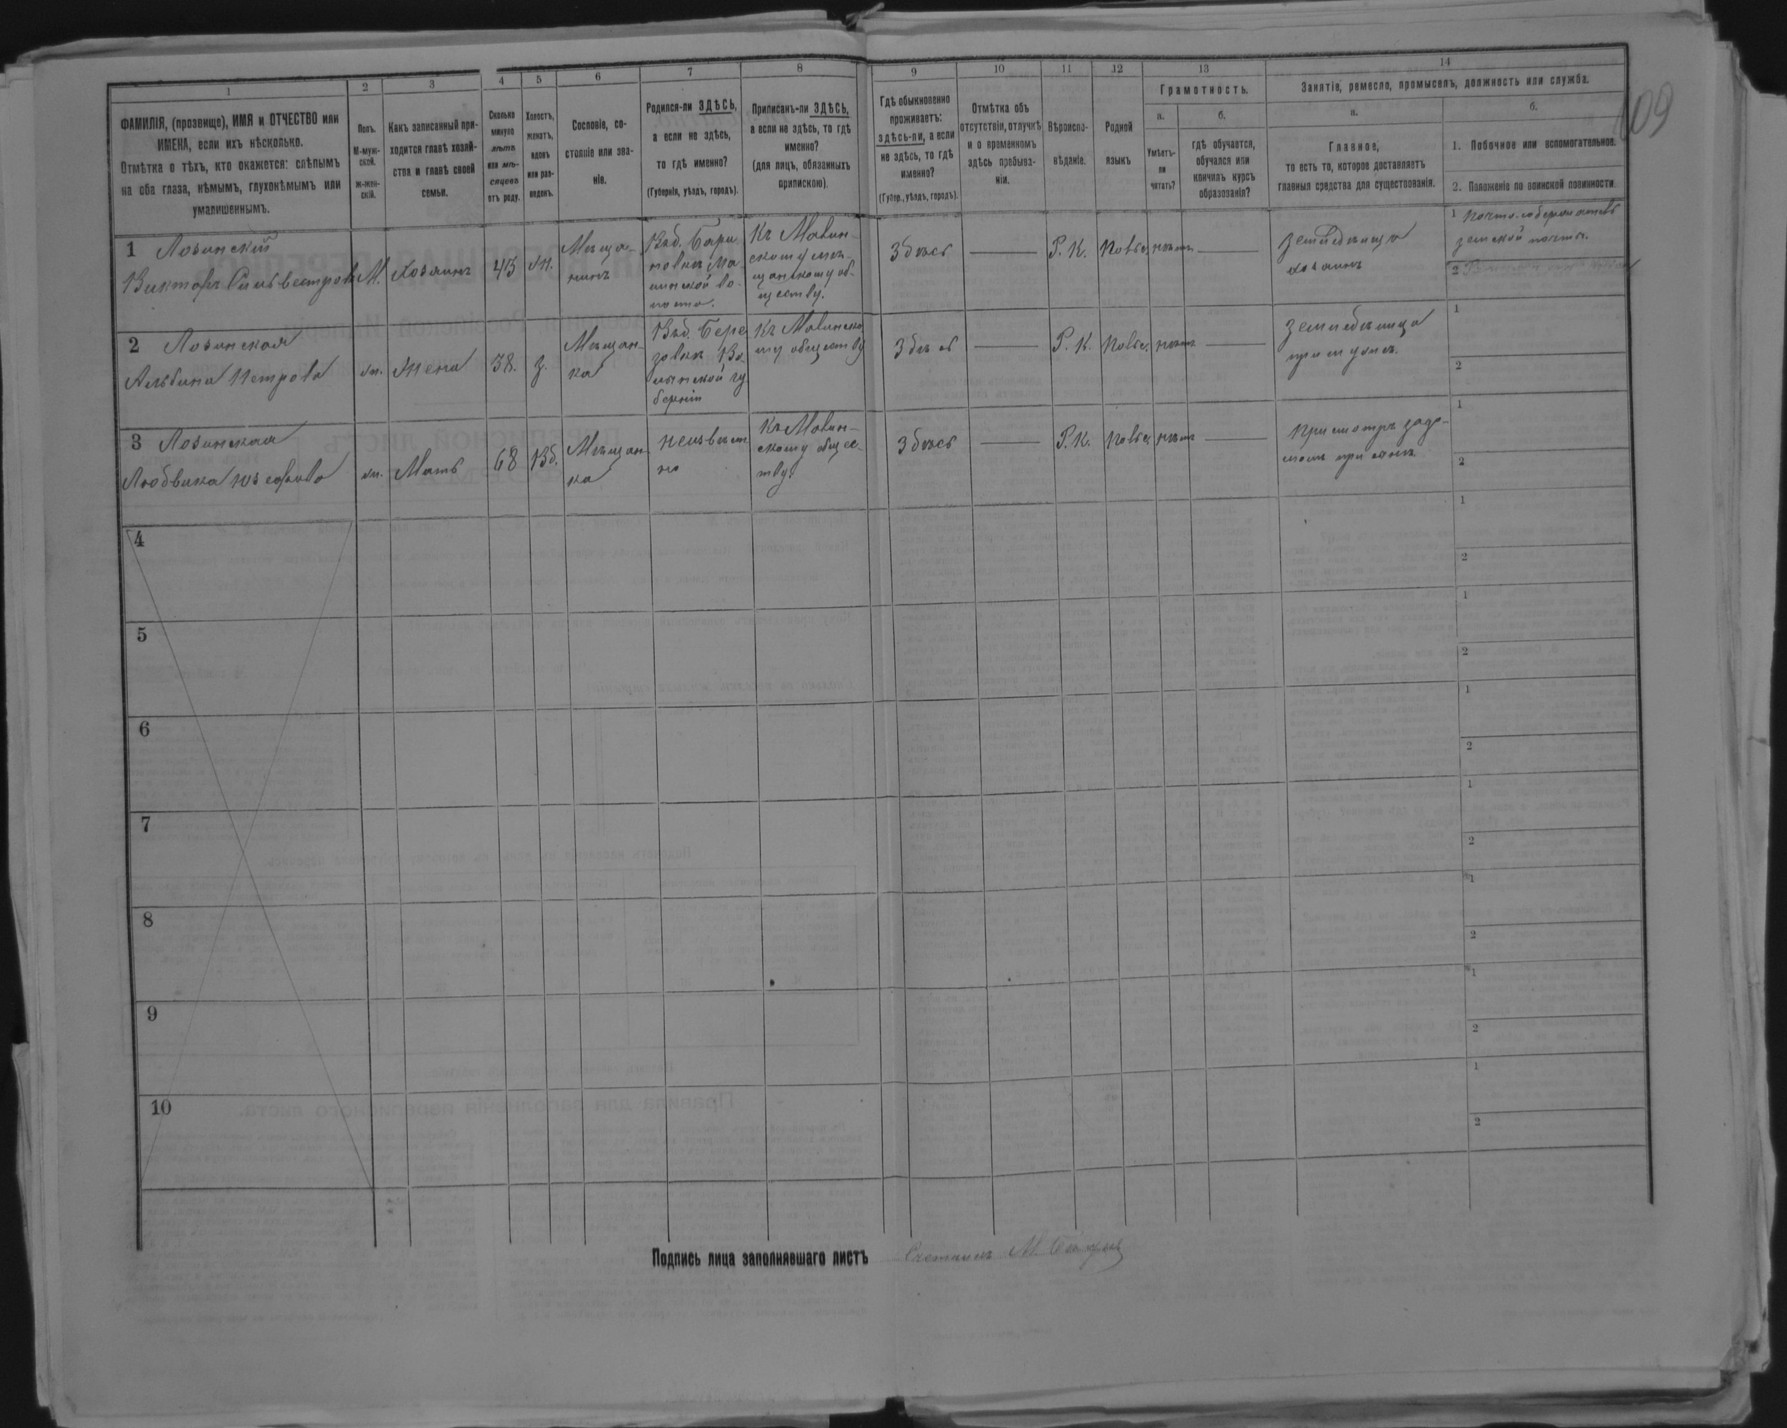 109
1
2
3
4
5
6
7
8
9
10
11
12
13
14
ФАМИЛІЯ, (прозвище), ИМЯ и ОТЧЕСТВО или
ИМЕНА, если ихъ нѣсколько.
Отмѣтка о тѣхъ, кто окажется: слѣпымъ
на оба глаза, нѣмымъ, глухонѣмымъ или
умалишеннымъ.
Полъ.
М-муж-
ской.
ж-жен-
скій.
Какъ записанный при-
ходится главѣ хозяй-
ства и главѣ своей
семьи.
Сколько
минуло
лѣтъ
или мѣ-
сяцевъ
отъ роду.
Холостъ,
женатъ,
вдовъ
или раз-
веденъ.
Сословіе, со-
стояніе или зва-
ніе.
Родился-ли ЗДѢСЬ,
а если не здѣсь,
то гдѣ именно?
(Губернія, уѣздъ, городъ).
Приписанъ-ли ЗДѢСЬ,
а если не здѣсь, то гдѣ
именно?
(для лицъ, обязанныхъ
припискою)
Гдѣ обыкновенно
проживаетъ:
здѣсь-ли, а если
не здѣсь, то гдѣ
именно?
(Губер., уѣздъ, городъ).
Отмѣтка объ
отсутствіи, отлучкѣ
и о временномъ
здѣсь пребыва-
ніи.
Вѣроиспо-
вѣданіе.
Родной
языкъ
Грамотность.
а.
Умѣетъ-
ли
читать?
б.
гдѣ обучается,
обучался или
кончилъ курсъ
образованія?
Занятіе, ремесло, промыселъ, должность или служба.
а.
Главное,
то есть то, которое доставляетъ
главныя средства для существованія.
б.
1. Побочное или вспомогательное.
2. Положеніе по воинской повинности
1 Лозинскій
Викторъ Сильвестровъ
М.
Хозяинъ
43
ж.
Мѣща-
нинъ
Къ Мавин-
скому мѣ-
щанскому об-
ществу.
Здѣсь
Р. К.
нѣтъ
хозяинъ
1
земской почты.
2
2 Лозинская
Альбина Петрова
ж.
Жена
38.
з.
Мѣщан-
ка
Въ д. Бере
зовкѣ Во
лынской гу
берніи
Здѣсь
Р. К.
нѣтъ
при мужѣ.
1
2
3 Лозинская
Людвика Юзефова
ж.
Мать
68
Вд.
Мѣщан
ка
неизвѣст
но
Къ Мавин-
скому обще-
ству
Здѣсь
Р. К.
нѣтъ
при сынѣ
1
2
4
1
2
5
1
2
6
1
2
7
1
2
8
1
2
9
1
2
10
1
2
Подпись лица заполнявшаго листъ
Счетчикъ М.